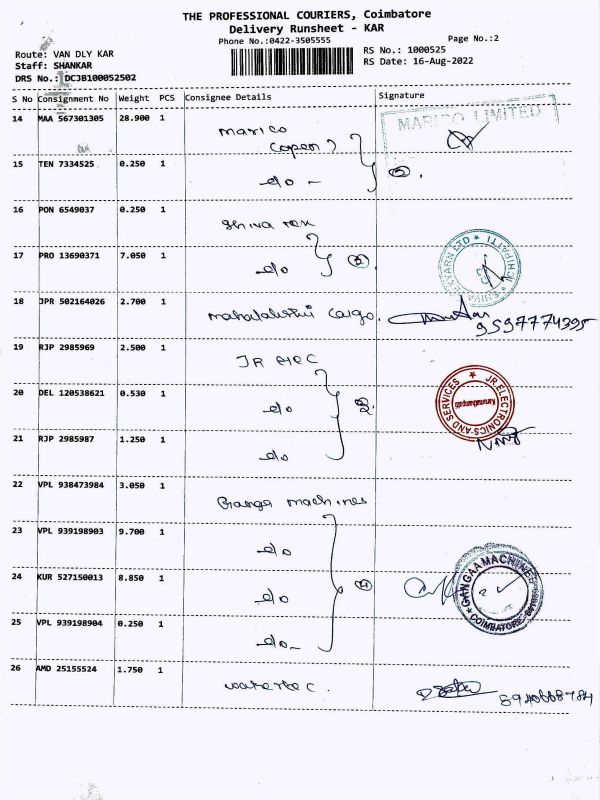 THE PROFESSIONAL COURIERS, Coimbatore
Delivery Runsheet - KAR
Phone No.:0422-3505555
Page No.:2
Route: VAN DLY KAR
RS No.: 1000525
Staff: SHANKAR
RS Date: 16-Aug-2022
DRS No.: DCJB100052502
S No Consignment No Weight PCS Consignee Details Signature
14 MAA 567301305 28.900 1 Marico
MARICO LIMITED
15 TEN 7334525 0.250 1 do -
16 PON 6549037 0.250 1 Shiva Tex
17 PRO 13690371 7.050 1 do
18 JPR 502164026 2.700 1 Mahalakshmi Cargo.
9597774395
19 RJP 2985969 2.500 1 JR elec
20 DEL 120538621 0.530 1 do
JR ELECTRONICS AND SERVICES
21 RJP 2985987 1.250 1 do
22 VPL 938473984 3.050 1 Ganga machines
23 VPL 939198903 9.700 1 do
24 KUR 527150013 8.850 1 do
GANGAA MACHINES
COIMBATORE
25 VPL 939198904 0.250 1 do -
26 AMD 25155524 1.750 1 watertec.